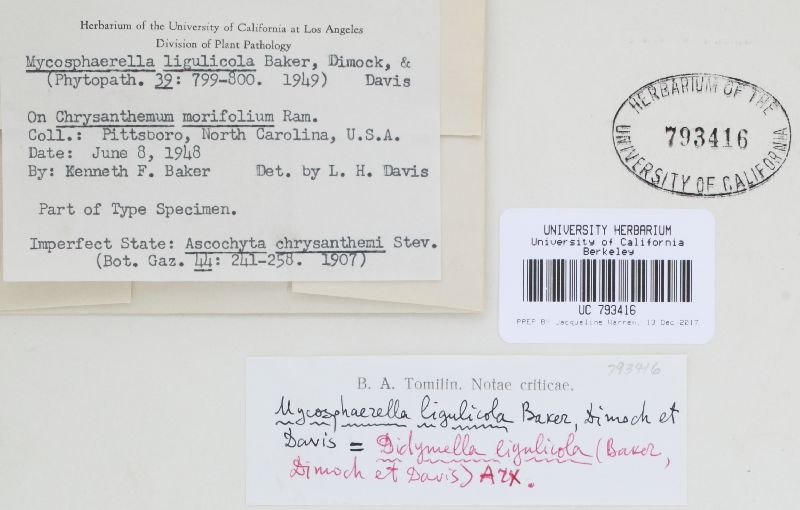 Herbarium of the University of California at Los Angeles
Division of Plant Pathology
Mycosphaerella ligulicola Baker, Dimock, &
(Phytopath. 39: 799-800. 1949) Davis
On Chrysanthemum morifolium Ram.
Coll.: Pittsboro, North Carolina, U.S.A.
Date: June 8, 1948
By: Kenneth F. Baker Det. by L. H. Davis
Part of Type Specimen.
Imperfect State: Ascochyta chrysanthemi Stev.
(Bot. Gaz. 44: 241-258. 1907)
HERBARIUM OF THE
793416
UNIVERSITY OF CALIFORNIA
UNIVERSITY HERBARIUM
University of California
Berkeley
UC 793416
PREP BY Jacqueline Warren, 13 Dec 2017
793416
B. A. Tomilin. Notae criticae.
Mycosphaerella ligulicola Baker, Dimoch et
Davis = Didymella ligulicola (Baker,
Dimoch et Davis) Arx.